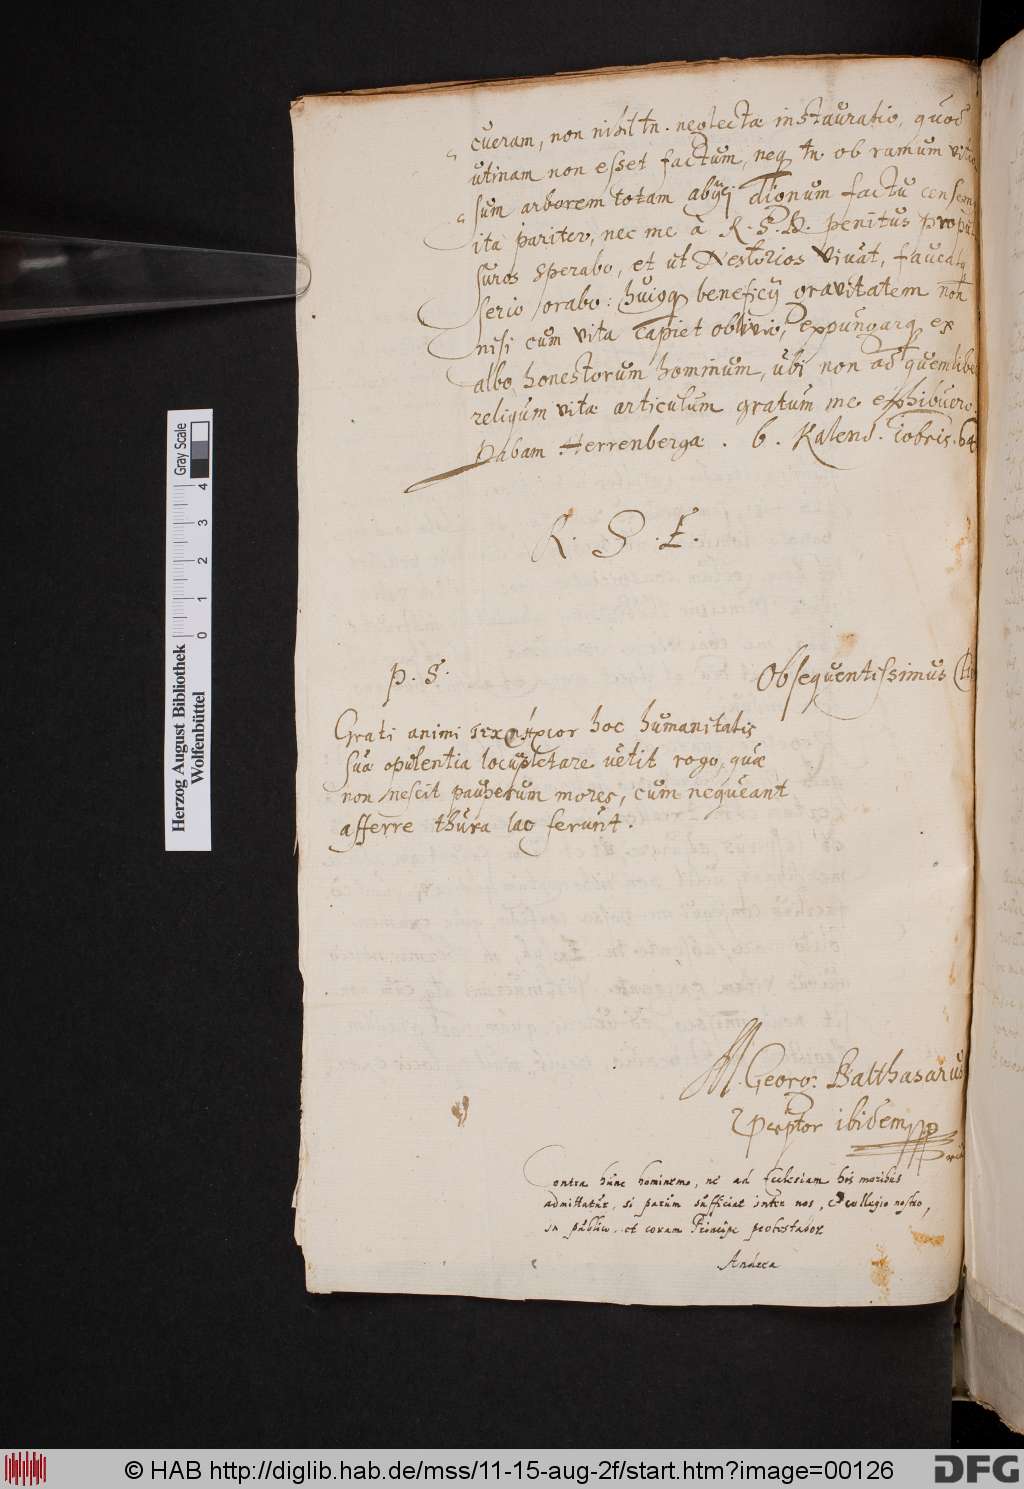 cueram, non nihil tn. neglectæ instauratio, quod
utinam non esset factum, neq tn. ob ramum vitio
sum arborem totam abijci dignum factu censem
ita pariter, nec me à R. S. D. penitus propul
suros sperabo, et ut Nestorios vivāt, faveatq
serio orabo: huiusq beneficij gravitatem non
nisi cum vita capiet oblivio, expungarq ex
albo honestorum hominum, ubi non ad quemlibe
reliqum vitæ articulum gratum me exhibuero.
Dabam Herrenbergæ . 6 . Kalend . iobris . 64
R. S. E.
P. S.
Obsequentissimus
Grati animi hoc humanitatis
suæ opulentia locupletare velit rogo, quæ
non nescit pauperum mores, cum nequeant
afferre thura lac ferunt.
M. Georg: Balthasarus
Pceptor ibidem
Contra hunc hominem, ne ad Ecclesiam his moribus
admittatur, si parum sufficiat inter nos, collegio nostro,
in publico et coram Principe protestabor
Andrea
Herzog August Bibliothek
Wolfenbüttel
0 1 2 3 4
Gray Scale
© HAB http://diglib.hab.de/mss/11-15-aug-2f/start.htm?image=00126
DFG